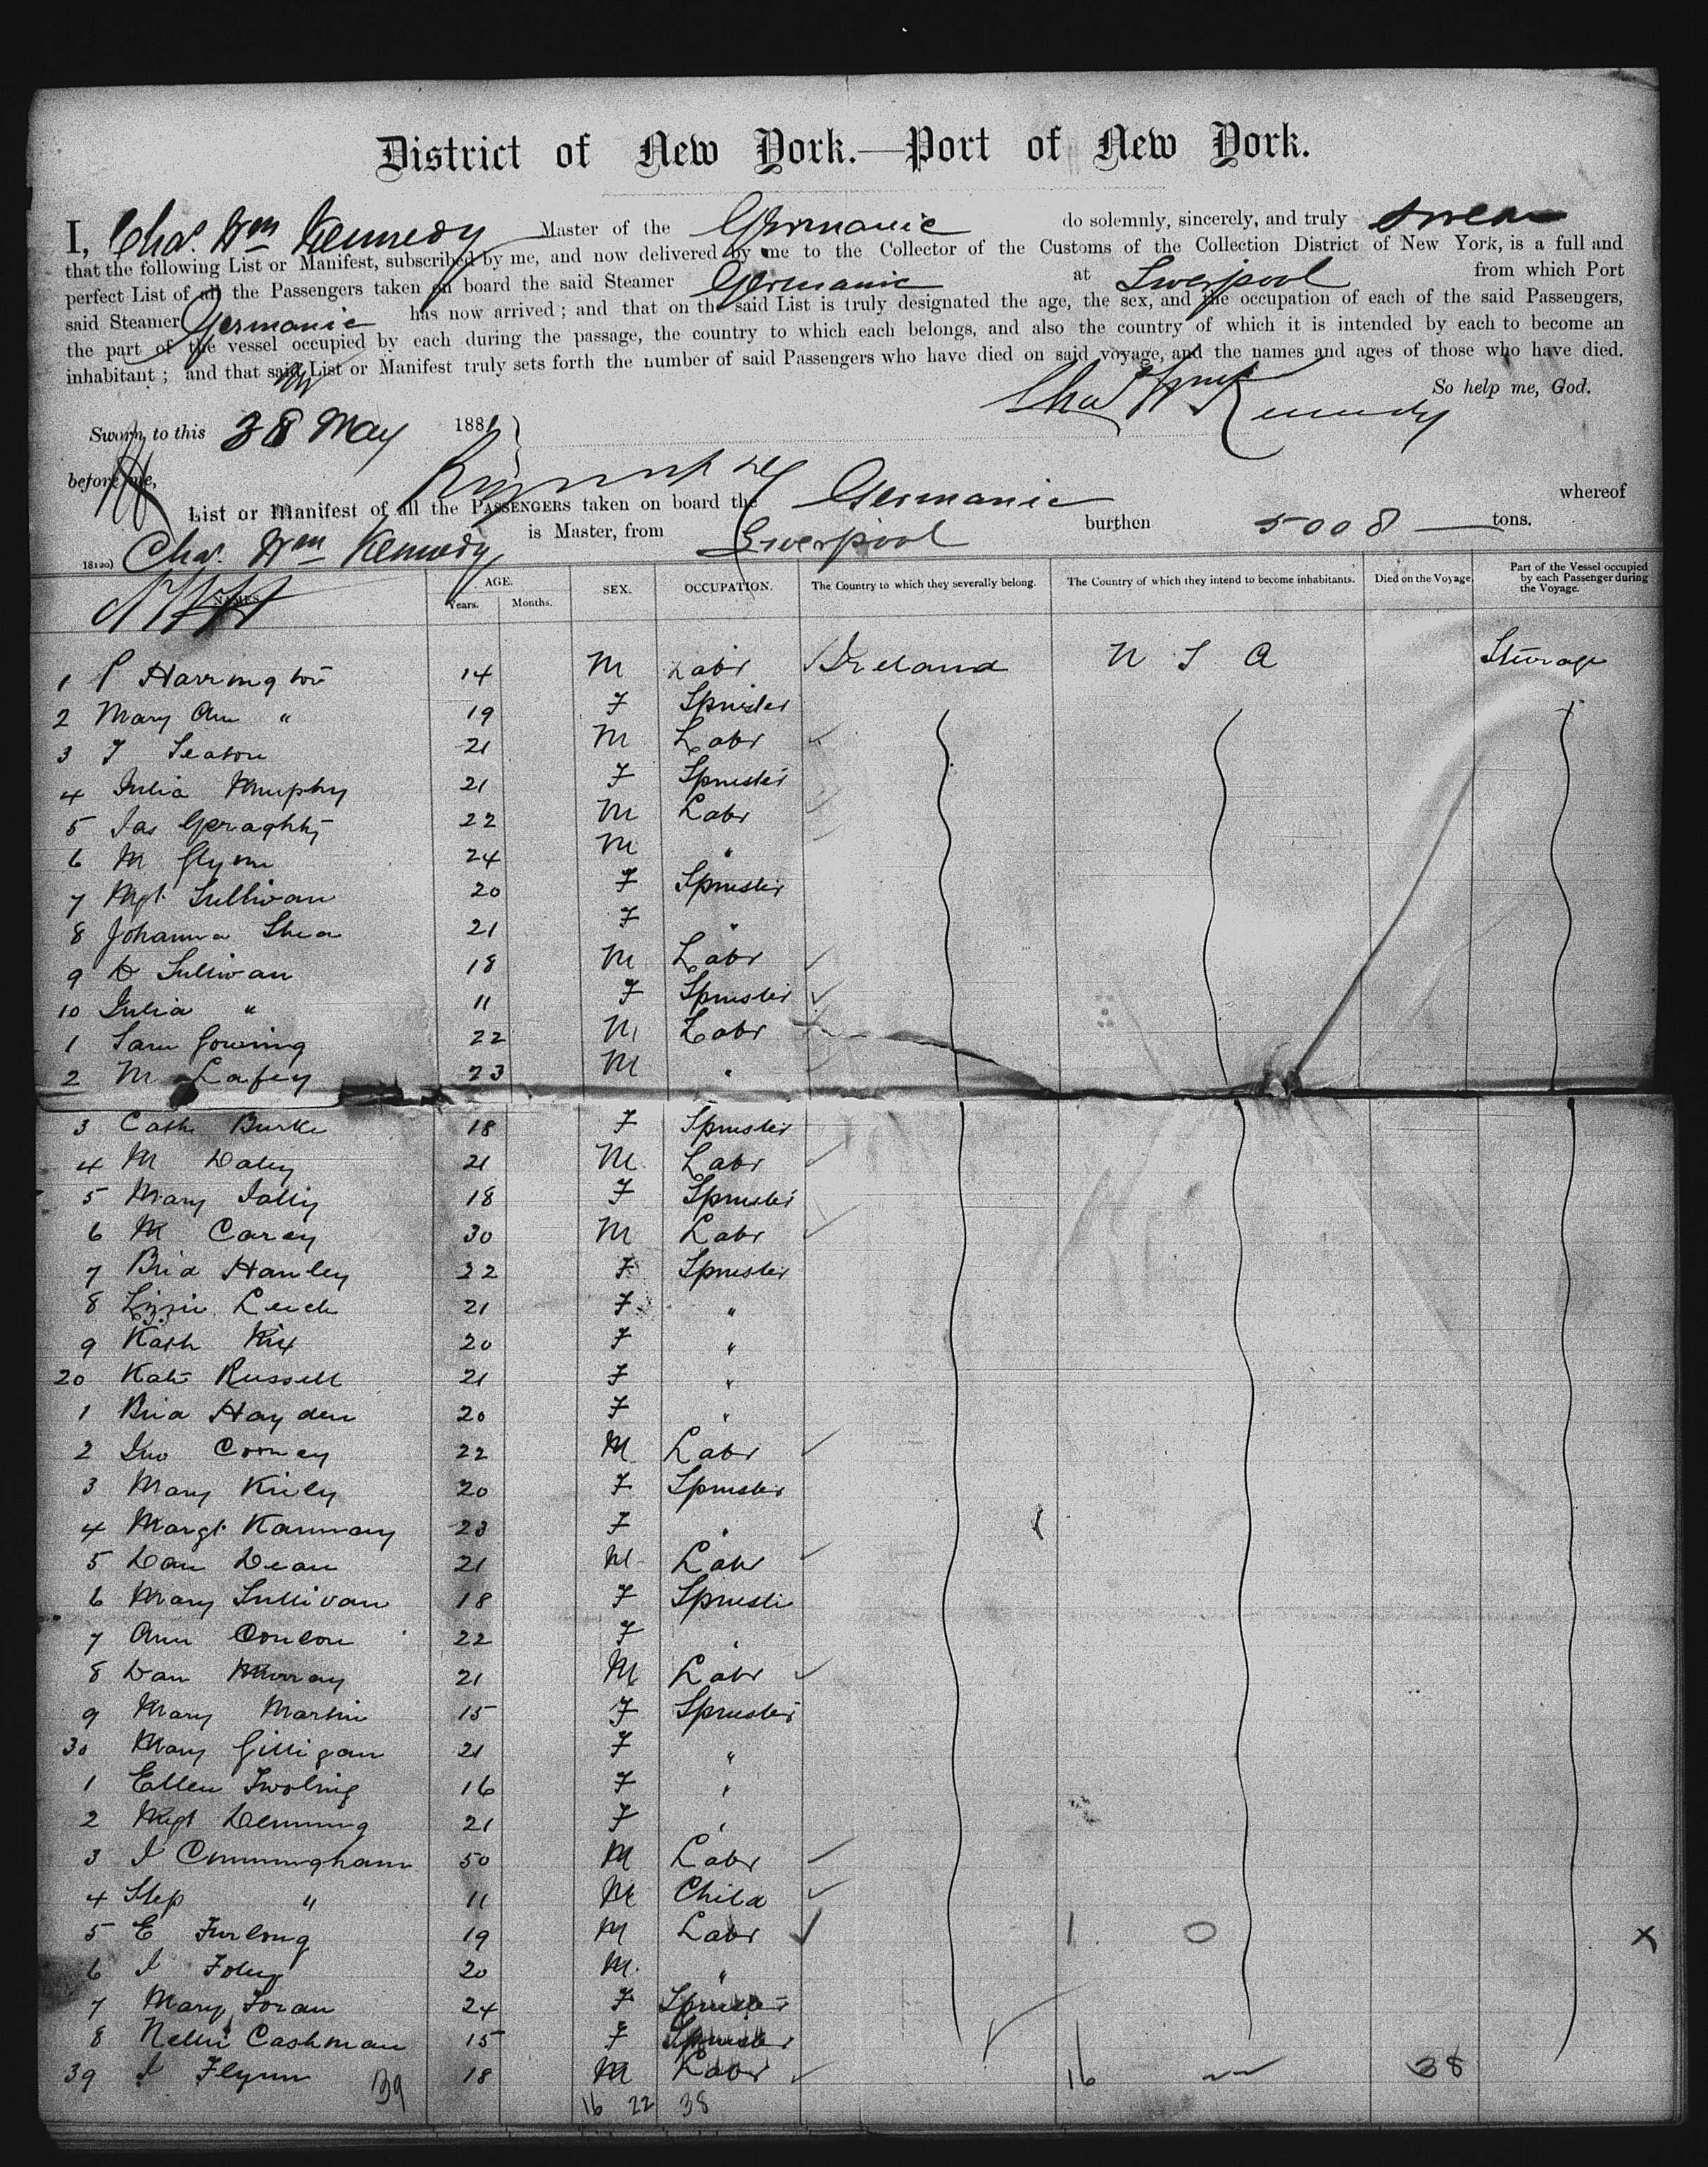 District of New York.—Port of New York.
I, Chas. Wm Kennedy Master of the Germanic do solemnly, sincerely, and truly swear
that the following List or Manifest, subscribed by me, and now delivered by me to the Collector of the Customs of the Collection District of New York, is a full and
perfect List of all the Passengers taken on board the said Steamer Germanic at Liverpool from which Port
said Steamer Germanic has now arrived; and that on the said List is truly designated the age, the sex, and the occupation of each of the said Passengers,
the part of the vessel occupied by each during the passage, the country to which each belongs, and also the country of which it is intended by each to become an
inhabitant; and that said List or Manifest truly sets forth the number of said Passengers who have died on said voyage, and the names and ages of those who have died.
So help me, God.
Chas Wm Kennedy
Sworn to this 28 May 1881
before me,
List or Manifest of all the PASSENGERS taken on board the Germanic whereof
Chas. Wm Kennedy is Master, from Liverpool burthen 5008 tons.
NAMES. AGE. Years. Months. SEX. OCCUPATION. The Country to which they severally belong. The Country of which they intend to become inhabitants. Died on the Voyage. Part of the Vessel occupied by each Passenger during the Voyage.
1 P Harrington 14 M Labr Ireland U S A Steerage
2 Mary Ann " 19 F Spinster
3 21 M Labr
4 Julia Murphy 21 F Spinster
5 Jas Geraghty 22 M Labr
6 M Glynn 24 M "
7 Mgt Sullivan 20 F Spinster
8 Johanna Shea 21 F "
9 D Sullivan 18 M Labr
10 Julia " 11 F Spinster
1 Sam Gowing 22 M Labr
2 M Lafey 23 M "
3 Cath Burke 18 F Spinster
4 M Daley 21 M Labr
5 Mary 18 F Spinster
6 M Carey 30 M Labr
7 Brid Hanley 22 F Spinster
8 Lizzie Leech 21 F "
9 Kath 20 F "
20 Kate Russell 21 F "
1 Brid Hayden 20 F "
2 Jno Cooney 22 M Labr
3 Mary Kiely 20 F Spinster
4 Margt 23 F "
5 Dan Dean 21 M Labr
6 Mary Sullivan 18 F Spinster
7 Ann Conlon 22 F "
8 Dan Murray 21 M Labr
9 Mary Martin 15 F Spinster
30 Mary Gilligan 21 F "
1 Ellen 16 F "
2 Mgt Denning 21 F "
3 J Cunningham 50 M Labr
4 Step " 11 M Child
5 E Furlong 19 M Labr 1 0 X
6 J Foley 20 M "
7 Mary Foran 24 F Spinster
8 Nellie Cashman 15 F Spinster
39 J Flynn 39 18 M Labr 16 38
16 22 38